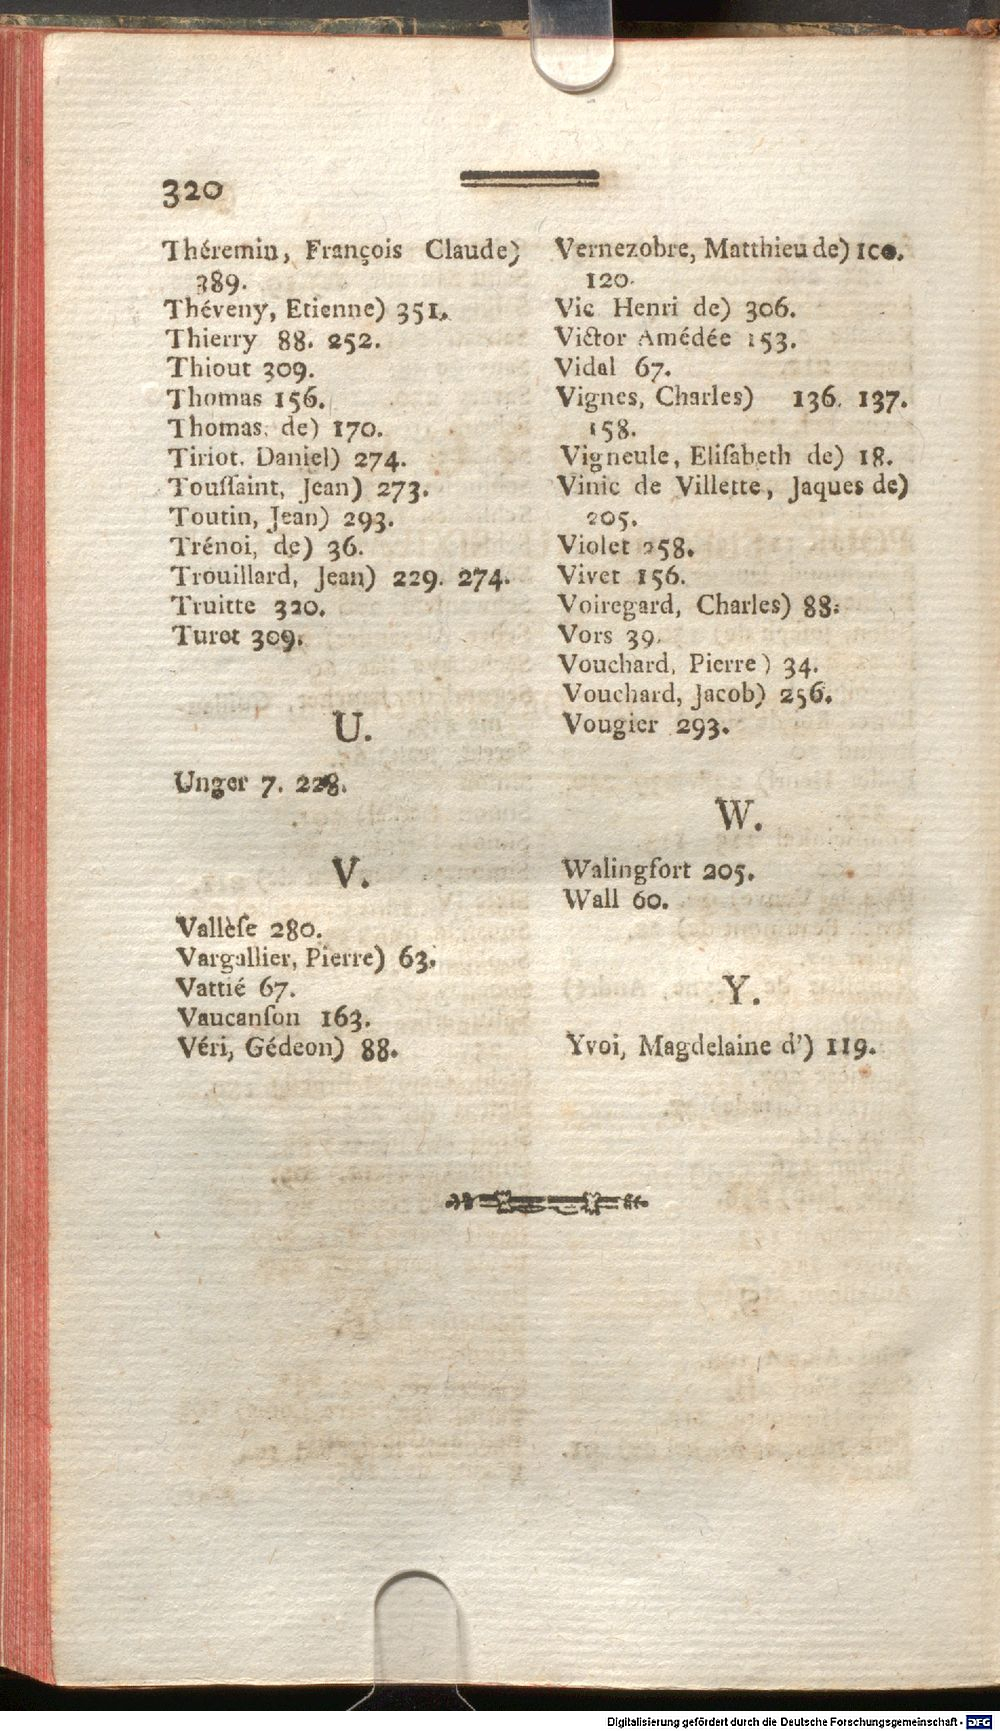 320
Théremin, François Claude)
389.
Théveny, Etienne) 351.
Thierry 88. 252.
Thiout 309.
Thomas 156.
Thomas, de) 170.
Tiriot, Daniel) 274.
Touſſaint, Jean) 273.
Toutin, Jean) 293.
Trénoi, de) 36.
Trouillard, Jean) 229. 274.
Truitte 320.
Turet 309.
U.
Unger 7. 228.
V.
Vallèſe 280.
Vargallier, Pierre) 63.
Vattié 67.
Vaucanſon 163.
Véri, Gédeon) 88.
Vernezobre, Matthieu de) 100.
120.
Vic Henri de) 306.
Victor Amédée 153.
Vidal 67.
Vignes, Charles) 136. 137.
158.
Vigneule, Eliſabeth de) 18.
Vinic de Villette, Jaques de)
205.
Violet 258.
Vivet 156.
Voiregard, Charles) 88.
Vors 39.
Vouchard, Pierre) 34.
Vouchard, Jacob) 256.
Vougier 293.
W.
Walingfort 205.
Wall 60.
Y.
Yvoi, Magdelaine d') 119.
Digitalisierung gefördert durch die Deutsche Forschungsgemeinschaft - DFG